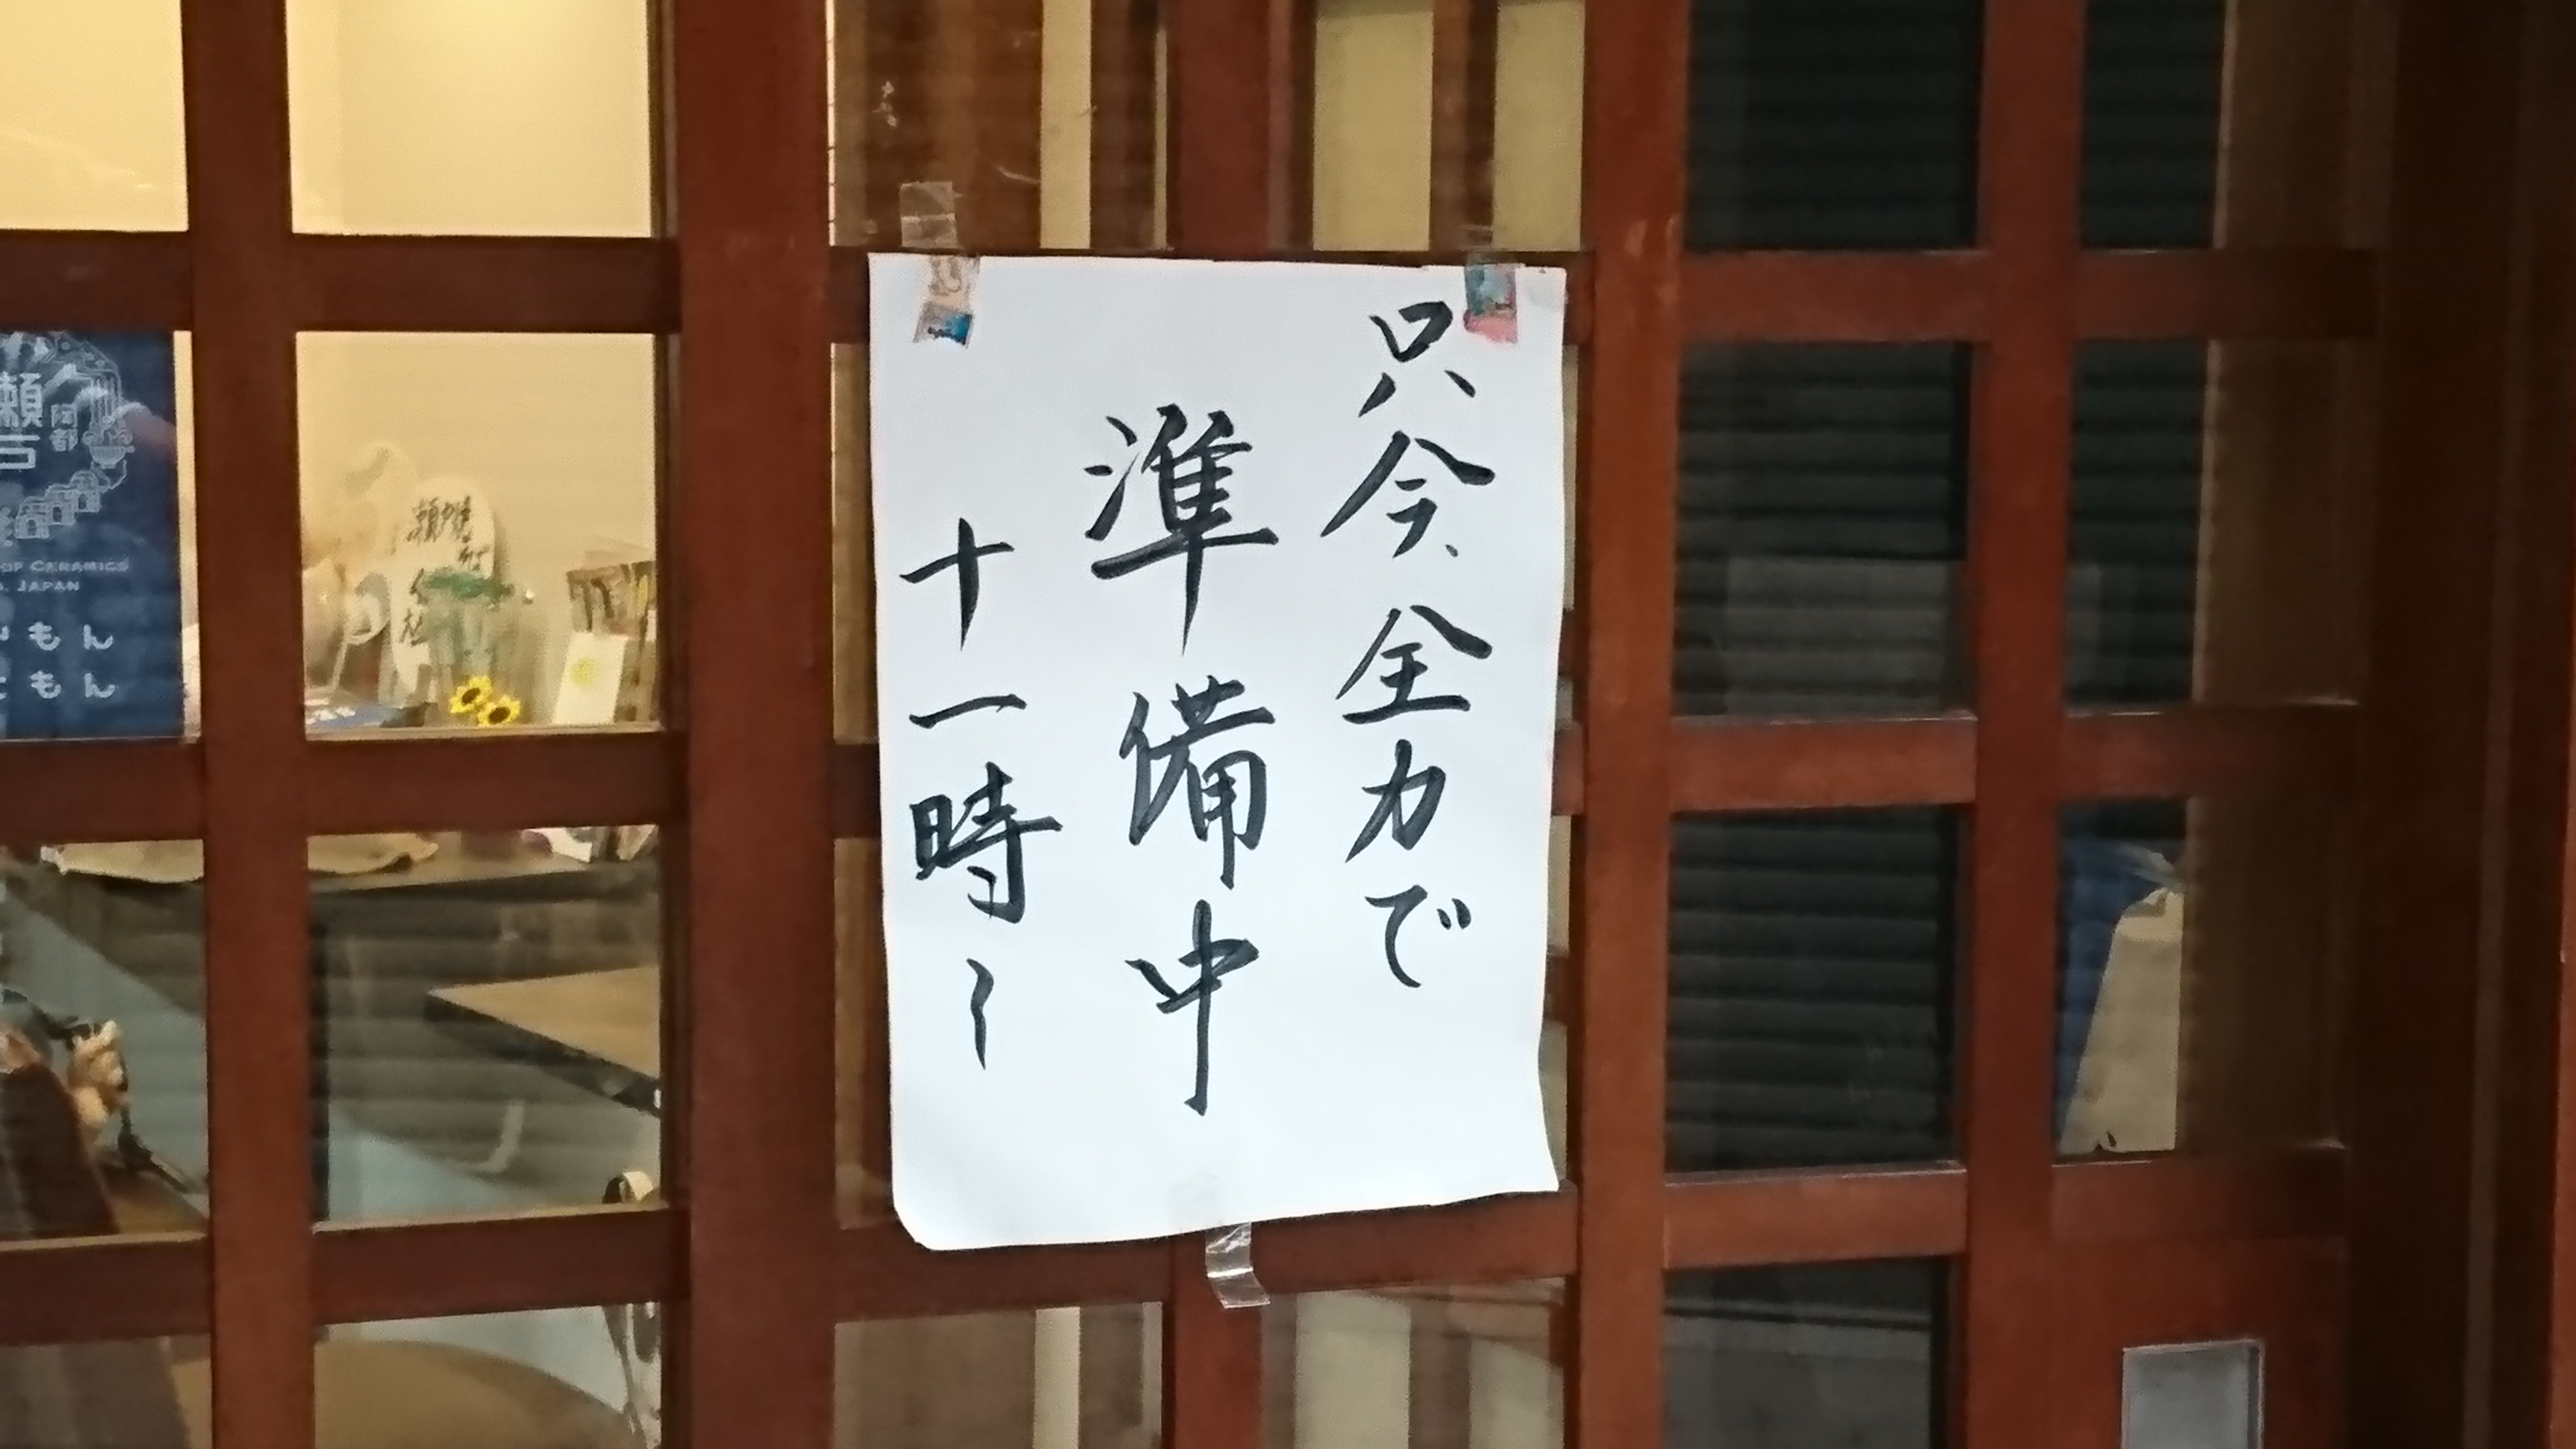 只今、全力で
準備中
十一時〜
瀬戸
陶都
OF CERAMICS
JAPAN
もん
もん